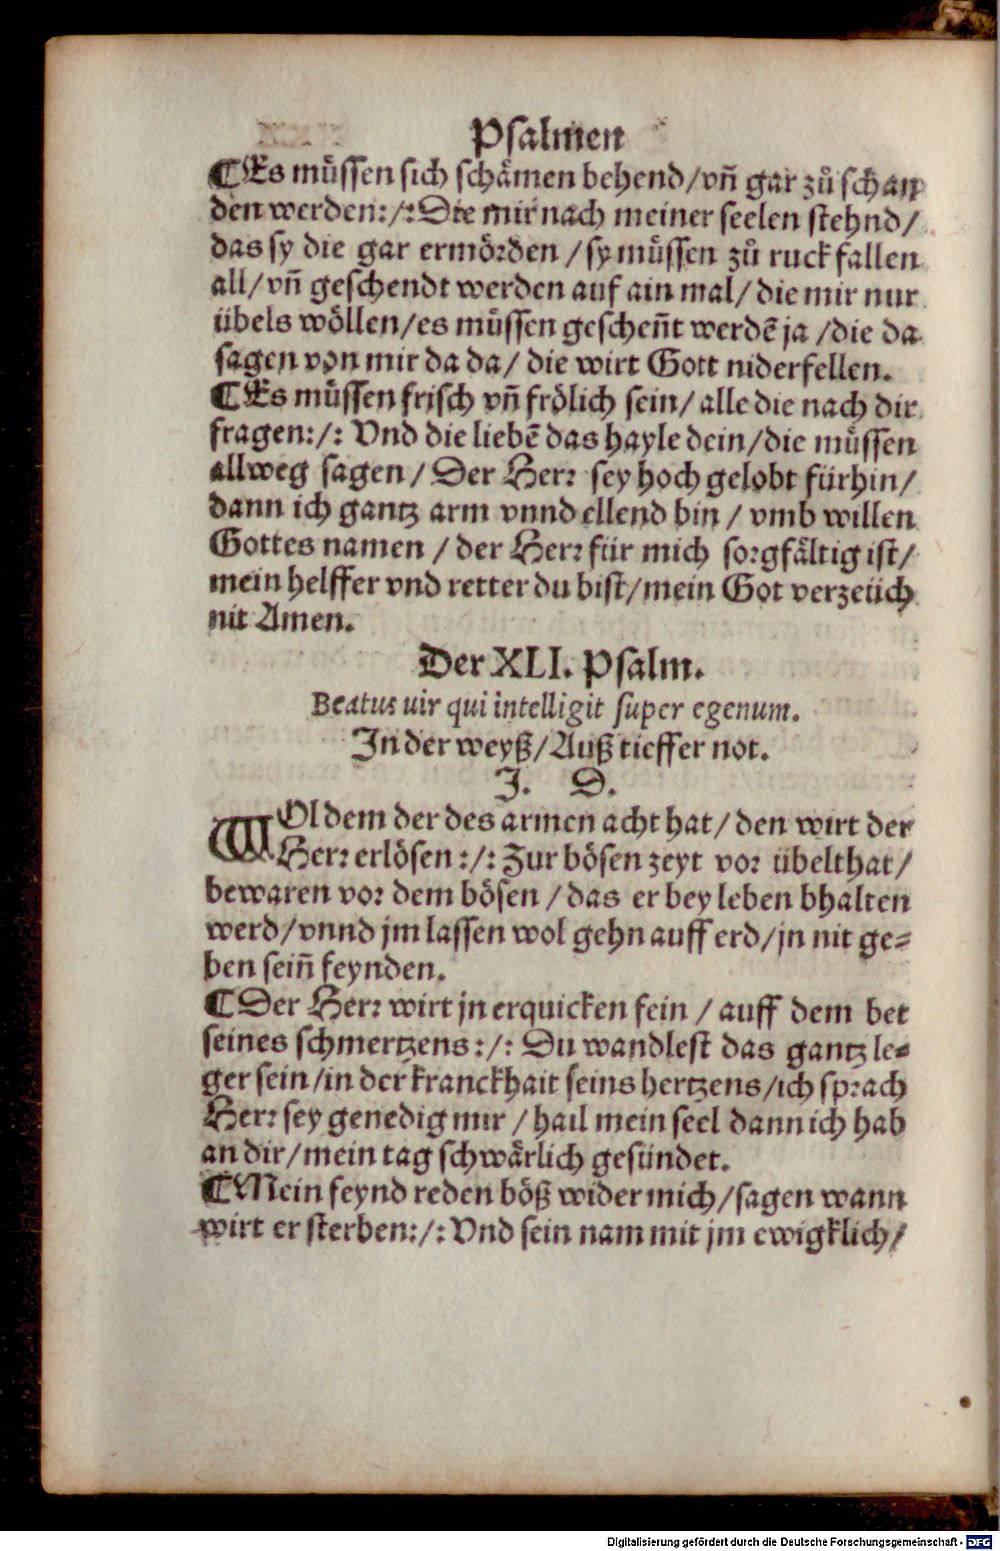 Psalmen
¶Es müssen sich schämen behend/vñ gar zů schan
den werden:/: Die mir nach meiner seelen stehnd/
das sy die gar ermörden / sy müssen zů ruck fallen
all/ vñ geschendt werden auf ain mal/ die mir nur
übels wöllen/es müssen gescheñt werdẽ ja /die da
sagen von mir da da/ die wirt Gott niderfellen.
¶Es müssen frisch vñ frölich sein/ alle die nach dir
fragen:/: Vnd die liebẽ das hayle dein/die müssen
allweg sagen / Der Herr sey hoch gelobt fürhin/
dann ich gantz arm vnnd ellend bin / vmb willen
Gottes namen / der Herr für mich sorgfältig ist/
mein helffer vnd retter du bist/mein Got verzeüch
nit Amen.
Der XLI. Psalm.
Beatus uir qui intelligit super egenum.
In der weyß/Auß tieffer not.
J. D.
WOl dem der des armen acht hat/ den wirt der
Herr erlösen :/: Zur bösen zeyt vor übelthat/
bewaren vor dem bösen / das er bey leben bhalten
werd/vnnd jm lassen wol gehn auff erd/jn nit ge-
ben seiñ feynden.
¶Der Herr wirt jn erquicken fein / auff dem bet
seines schmertzens:/: Du wandlest das gantz le-
ger sein/in der kranckhait seins hertzens/ich sprach
Herr sey genedig mir / hail mein seel dann ich hab
an dir/mein tag schwärlich gesündet.
¶Mein feynd reden böß wider mich/sagen wann
wirt er sterben:/: Vnd sein nam mit jm ewigklich/
Digitalisierung gefördert durch die Deutsche Forschungsgemeinschaft - DFG